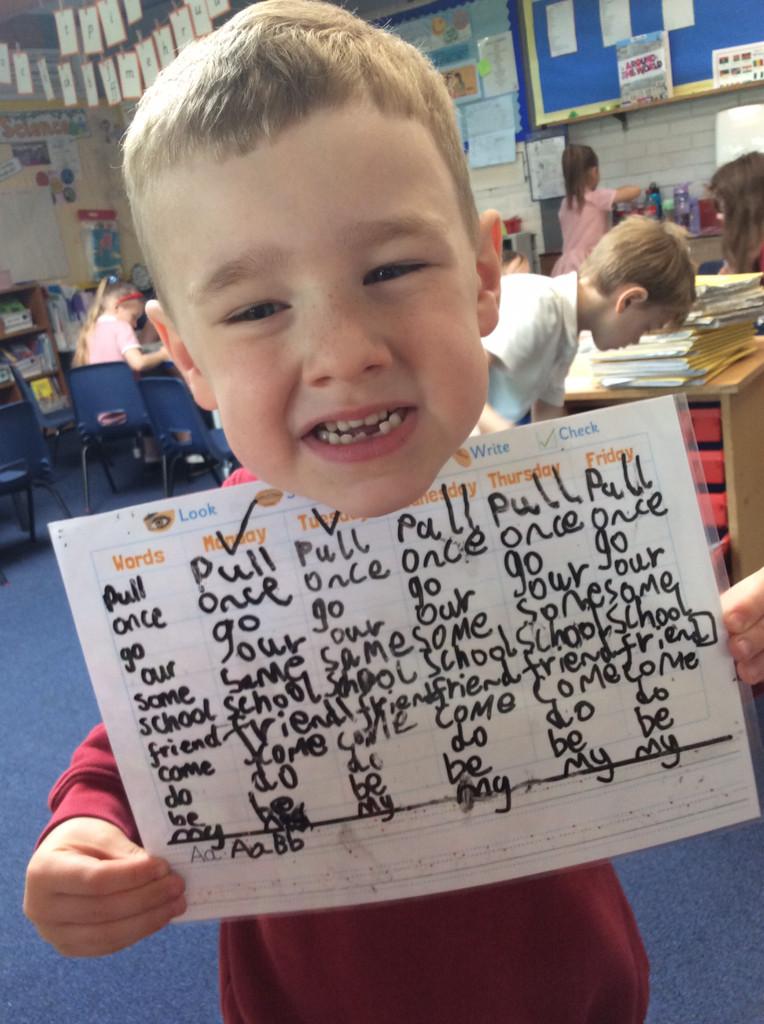 Science
AROUND
THE WORLD
Look
Write
Check
Words Monday Tuesday Wednesday Thursday Friday
Pull Pull Pull Pull Pull Pull
once once once once once once
go go go go go go
our our our our our our
some some some some some some
school school school school school school
friend friend friend friend friend friend
come come come come come come
do do do do do do
be be be be be be
my my my my my
Aa Aa Bb